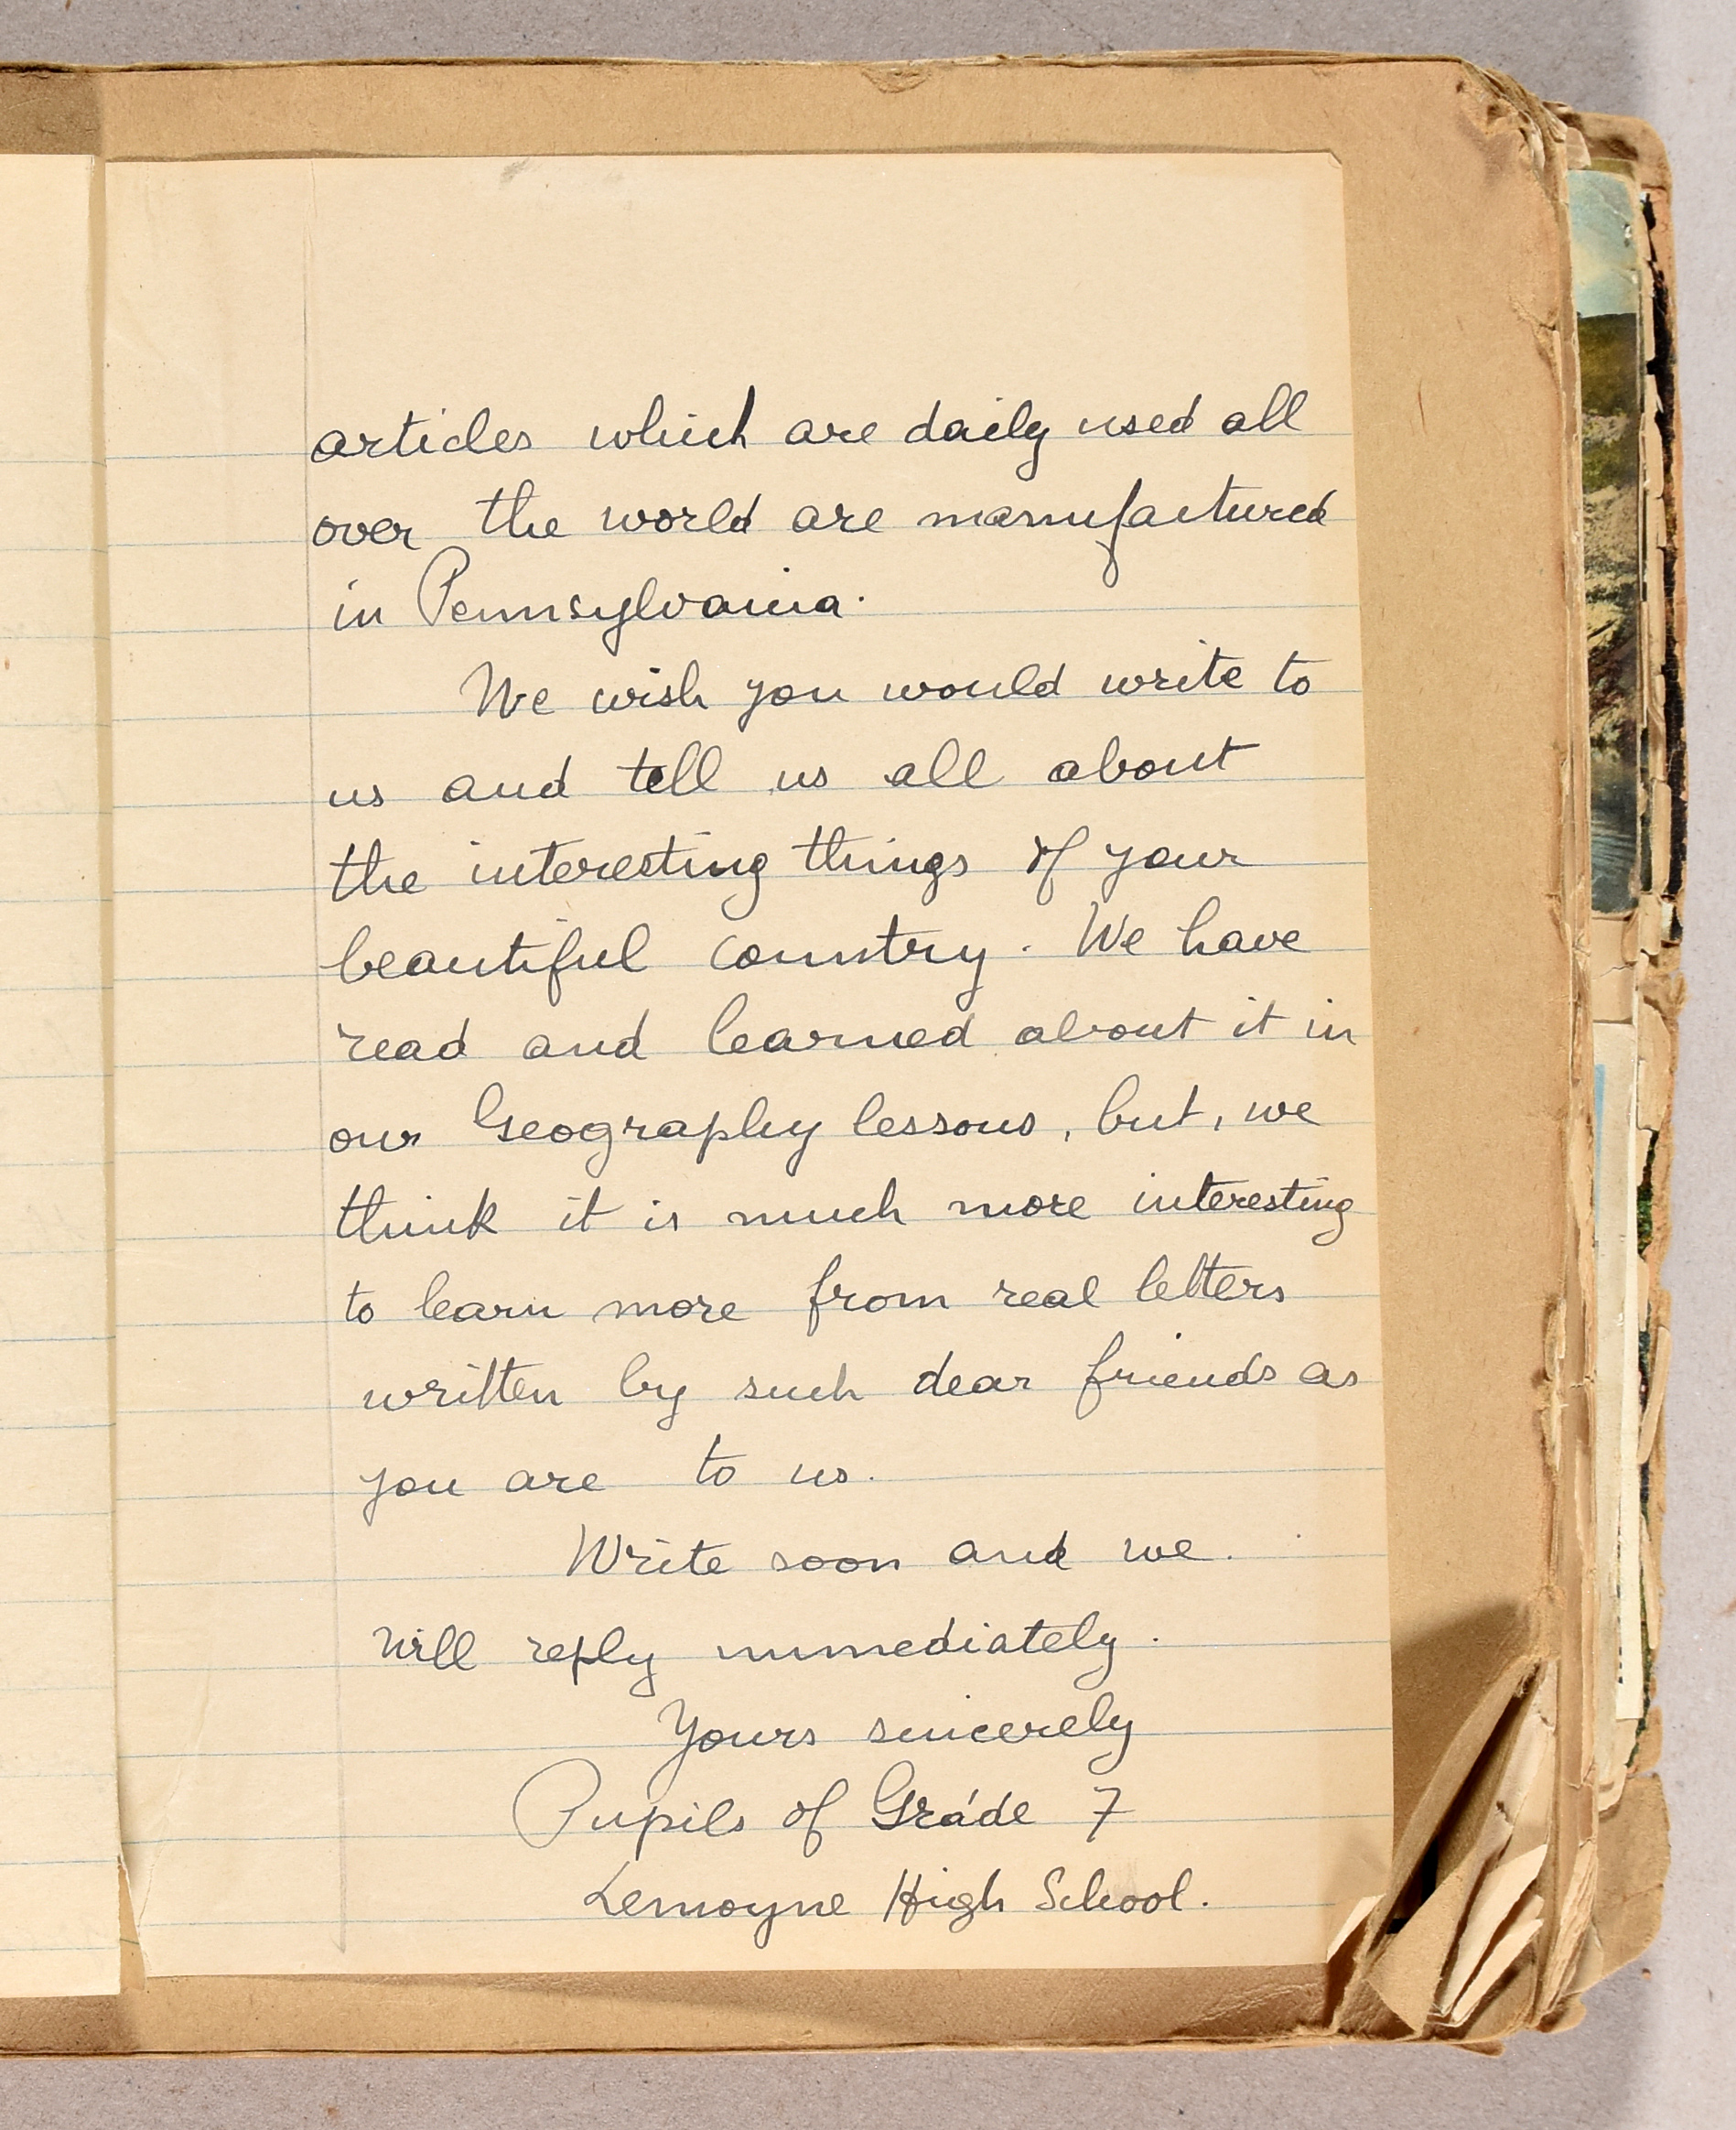 articles which are daily used all
over the world are manufactured
in Pennsylvania.
We wish you would write to
us and tell us all about
the interesting things of your
beautiful country. We have
read and learned about it in
our Geography lessons, but, we
think it is much more interesting
to learn more from real letters
written by such dear friends as
you are to us.
Write soon and we.
Will reply immediately.
Yours sincerely
Pupils of Grade 7
Lemoyne High School.